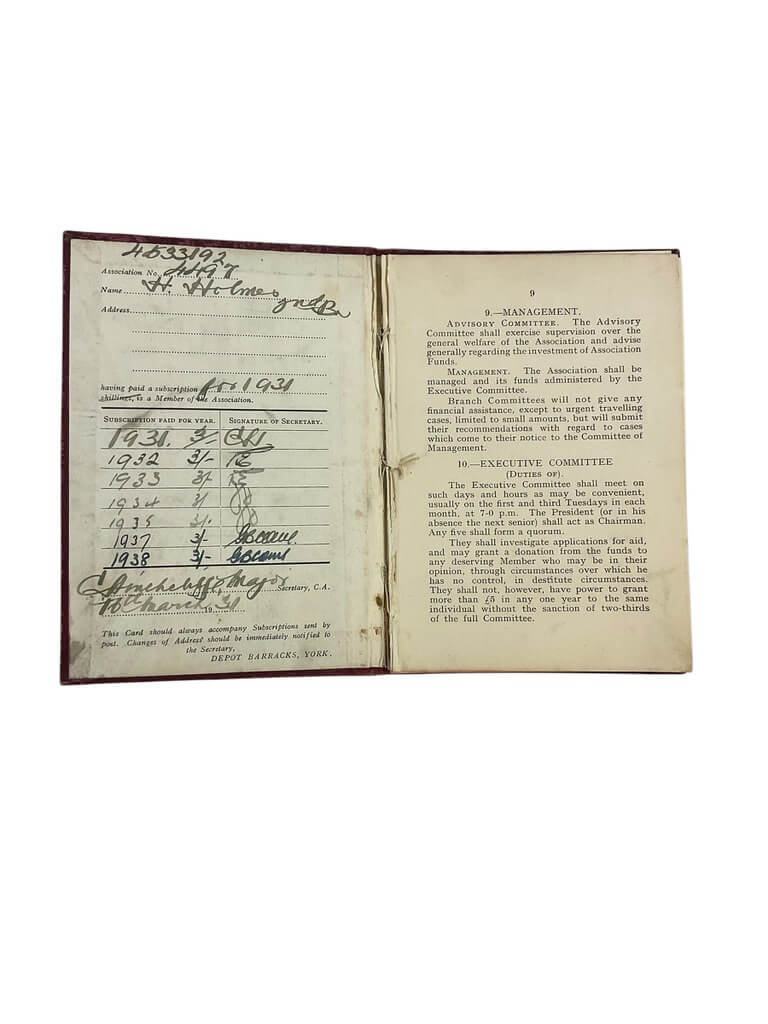 4533192
Association No. 4497
Name H. Holmes
2nd Bn
Address
having paid a subscription for 1931
shillings, is a Member of the Association.
SUBSCRIPTION PAID FOR YEAR. SIGNATURE OF SECRETARY.
1931. 3/-
1932 3/-
1933 3/-
1934 3/
1935 3/-
1937 3/-
1938 3/-
Major Secretary, C.A.
16th March. 31
This Card should always accompany Subscriptions sent by
post. Changes of Address should be immediately notified to
the Secretary,
DEPOT BARRACKS, YORK.
9
9.—MANAGEMENT.
ADVISORY COMMITTEE. The Advisory
Committee shall exercise supervision over the
general welfare of the Association and advise
generally regarding the investment of Association
Funds.
MANAGEMENT. The Association shall be
managed and its funds administered by the
Executive Committee.
Branch Committees will not give any
financial assistance, except to urgent travelling
cases, limited to small amounts, but will submit
their recommendations with regard to cases
which come to their notice to the Committee of
Management.
10.—EXECUTIVE COMMITTEE
(DUTIES OF).
The Executive Committee shall meet on
such days and hours as may be convenient,
usually on the first and third Tuesdays in each
month, at 7-0 p.m. The President (or in his
absence the next senior) shall act as Chairman.
Any five shall form a quorum.
They shall investigate applications for aid,
and may grant a donation from the funds to
any deserving Member who may be in their
opinion, through circumstances over which he
has no control, in destitute circumstances.
They shall not, however, have power to grant
more than £5 in any one year to the same
individual without the sanction of two-thirds
of the full Committee.